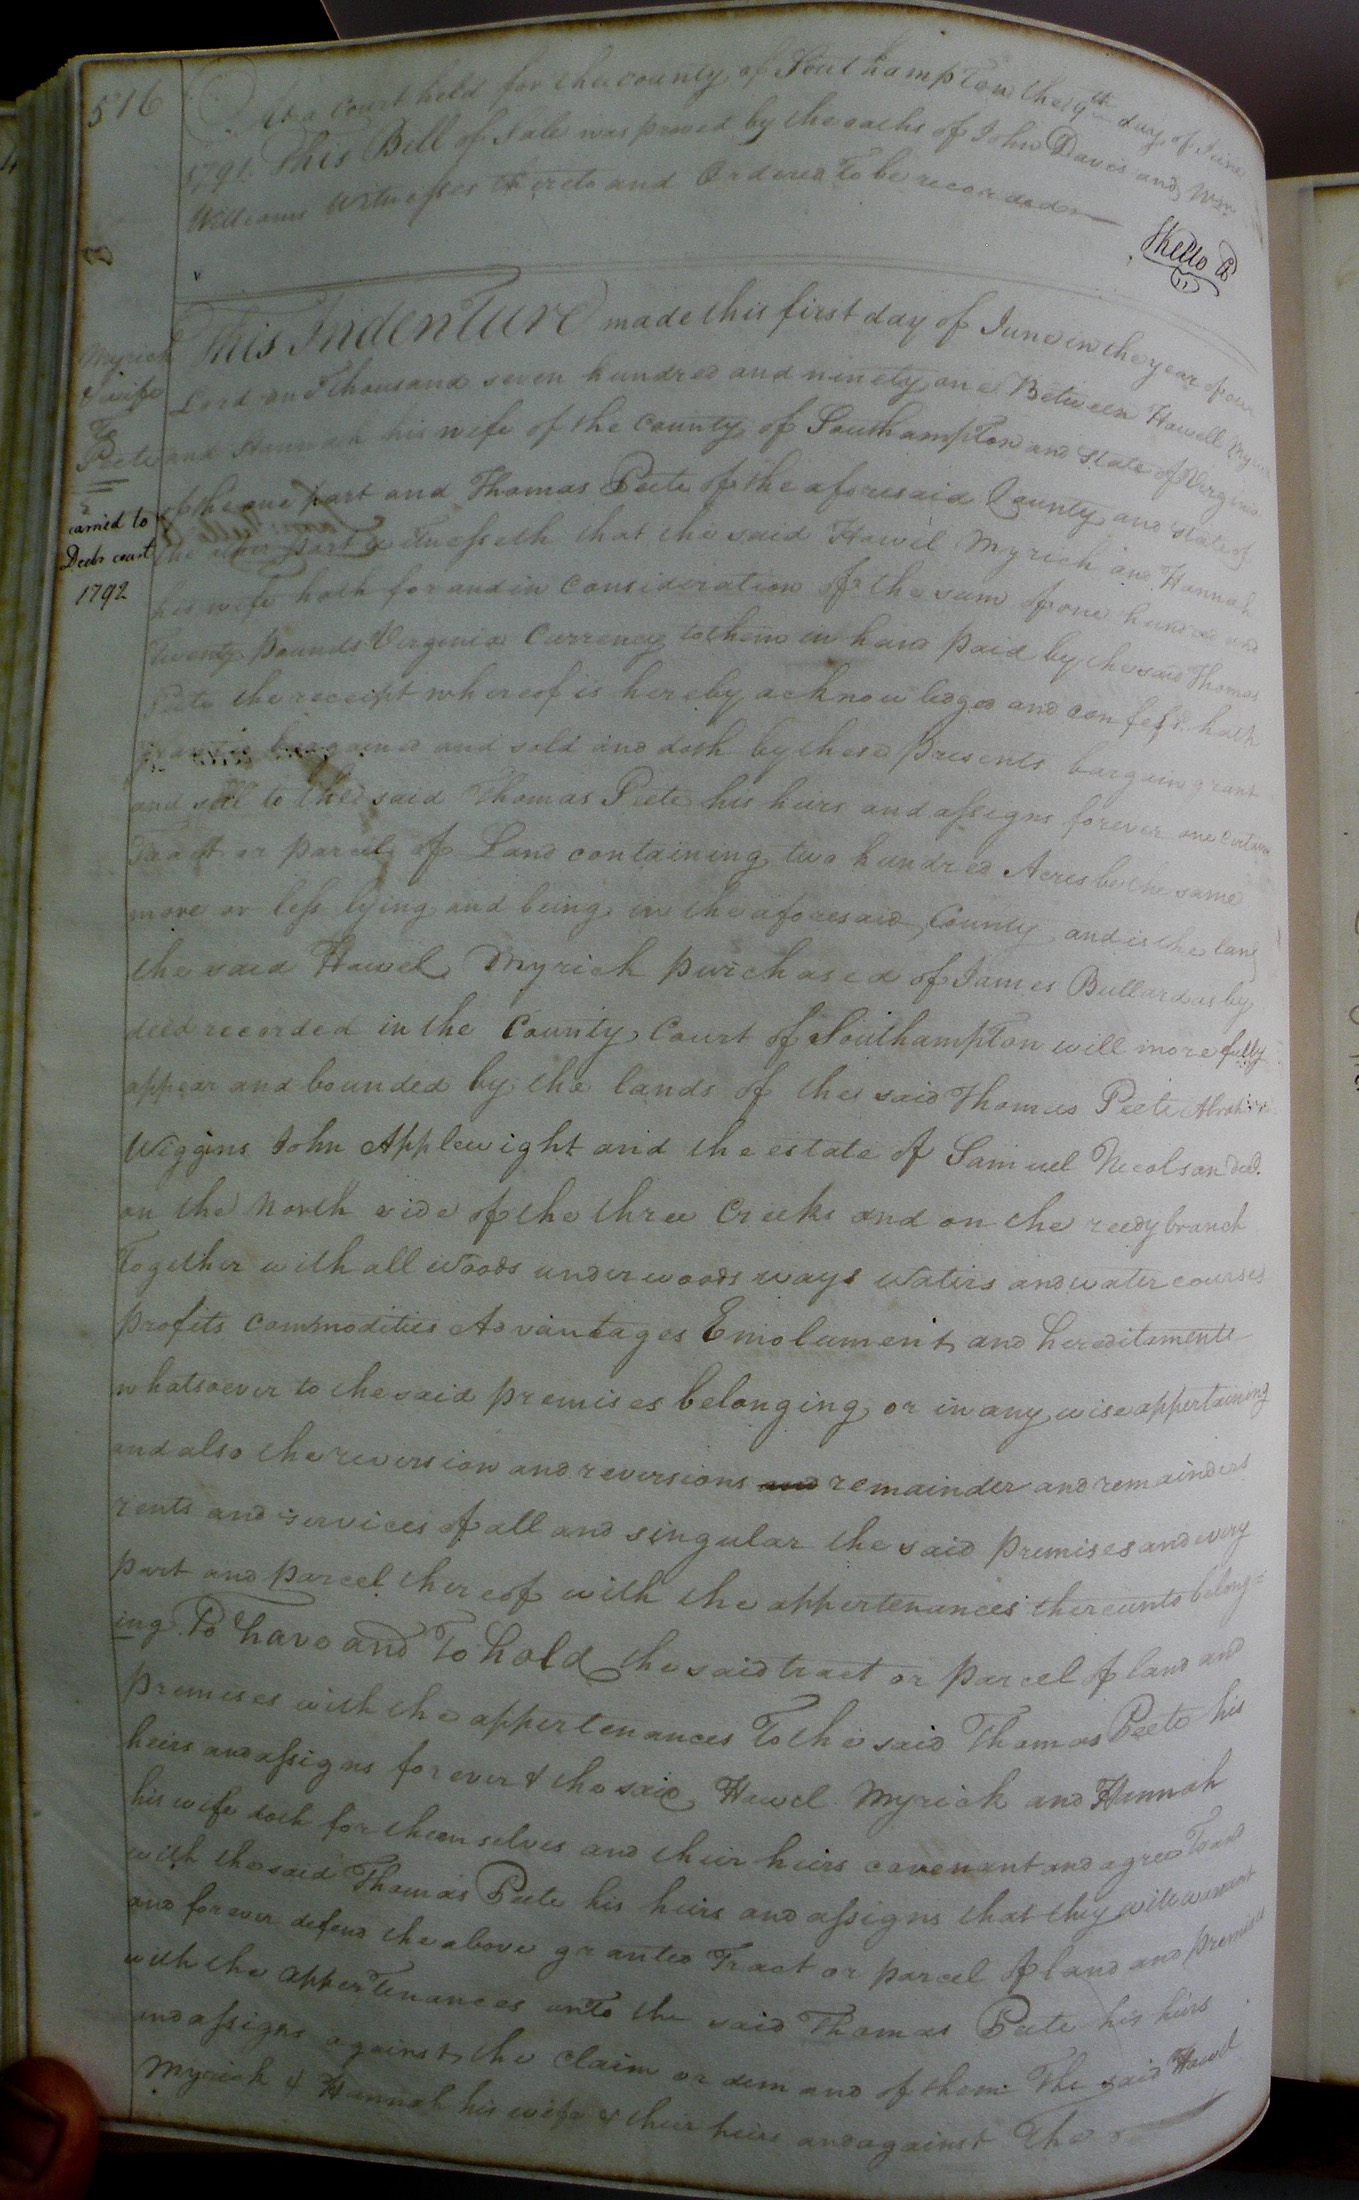 516
At a court held for the county of Southampton the 9th day of June
1791. This Bill of Sale was proved by the oaths of John Davis and Wm
Williams Witnesses thereto and Ordered To be recorded
Myrick
& wife
To
Peete
carried to
Decbr court
1792
This Indenture made this first day of June in the year of our
Lord one Thousand seven hundred and ninety one Between Howell Myrick
and Hannah his wife of the County of Southampton and State of Virginia
of the one part and Thomas Peete of the aforesaid County and State of
the other part Witnesseth that the said Howel Myrick and Hannah
his wife hath for and in Consideration of the sum of one hundred and
Twenty Pounds Virginia Currency to them in hand paid by the said Thomas
Peete the receipt whereof is hereby acknowledged and confess'd hath
granted bargained and sold and doth by these presents bargain grant
and sell to the said Thomas Peete his heirs and assigns forever one certain
Tract or parcel of Land containing two hundred Acres be the same
more or less lying and being in the aforesaid County and is the land
the said Howel Myrick purchased of James Bullard as by
deed recorded in the County Court of Southampton will more fully
appear and bounded by the lands of the said Thomas Peete Abraham
Wiggins John Applewight and the estate of Samuel Nicolson decd.
on the North side of the three Creeks and on the reedy branch
Together with all Woods underwoods ways Waters and water courses
profits commodities Advantages Emolument and hereditaments
whatsoever to the said premises belonging or in any wise appertaining
and also the reversion and reversions and remainder and remainders
rents and services of all and singular the said premises and every
part and parcel thereof with the appertenances thereunto belong=
ing To have and To hold the said tract or parcel of land and
premises with the appertenances To the said Thomas Peete his
heirs and assigns forever & the said Howel Myrick and Hannah
his wife doth for themselves and their heirs covenant and agree To and
with the said Thomas Peete his heirs and assigns that they will warrant
and forever defend the above granted Tract or parcel of land and premises
with the appertenances unto the said Thomas Peete his heirs
and assigns against the claim or demand of them The said Howel
Myrick & Hannah his wife & their heirs and against The